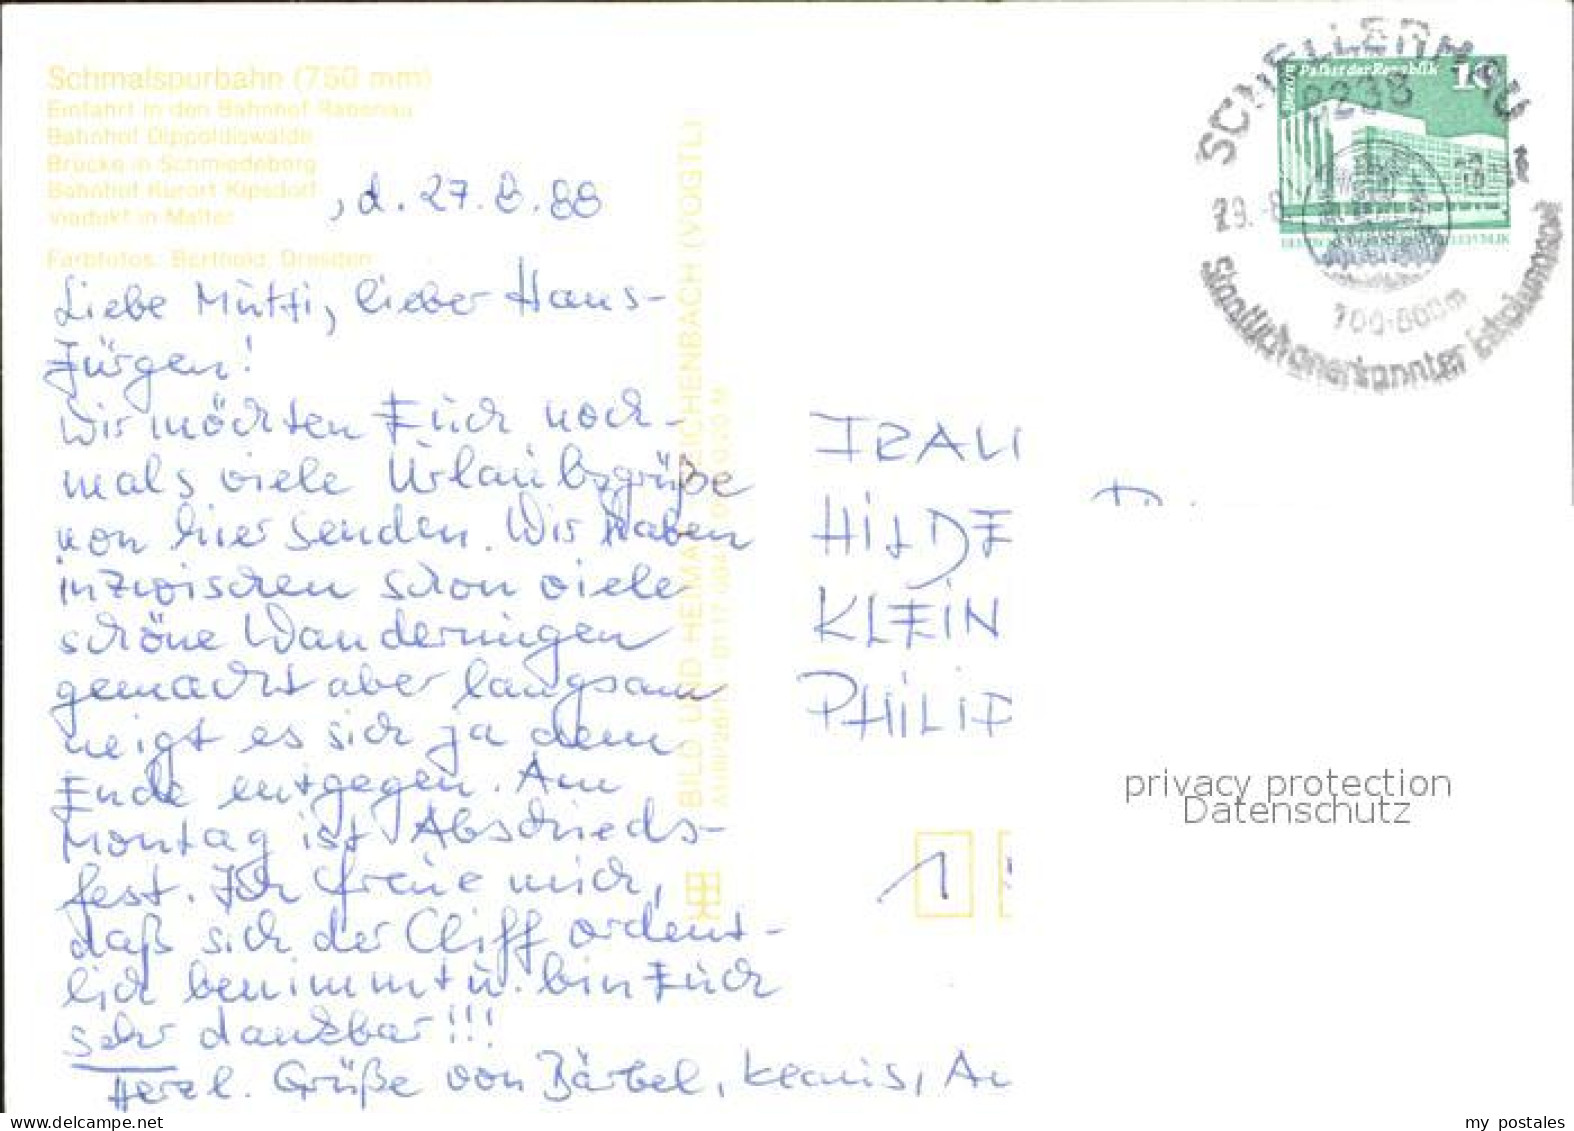 Schmalspurbahn (750 mm)
Einfahrt in den Bahnhof Rabenau
Bahnhof Dippoldiswalde
Brücke in Schmiedeberg
Bahnhof Kurort Kipsdorf
Viadukt in Malter
Farbfotos: Barthold, Dresden
, d. 27.8.88
Liebe Mutti, lieber Hans-
Jürgen!
Wir möchten Euch noch-
mals viele Urlaubsgrüße
von hier senden. Wir haben
inzwischen schon viele
schöne Wanderungen
gemacht aber langsam
neigt es sich ja dem
Ende entgegen. Am
Montag ist Abschieds-
fest. Ich freue mich,
daß sich der Cliff ordent-
lich benimmt u. bin Euch
sehr dankbar!!!
Herzl. Grüße von Bärbel,
BILD UND HEIMAT REICHENBACH (VOGTL)
SCHELLERHAU
8238
29.-8
700-800m
Staatlich anerkannter Erholungsort
Palast der Republik
10
HILDE
KLEIN
PHILIP
1
privacy protection
Datenschutz
my postales